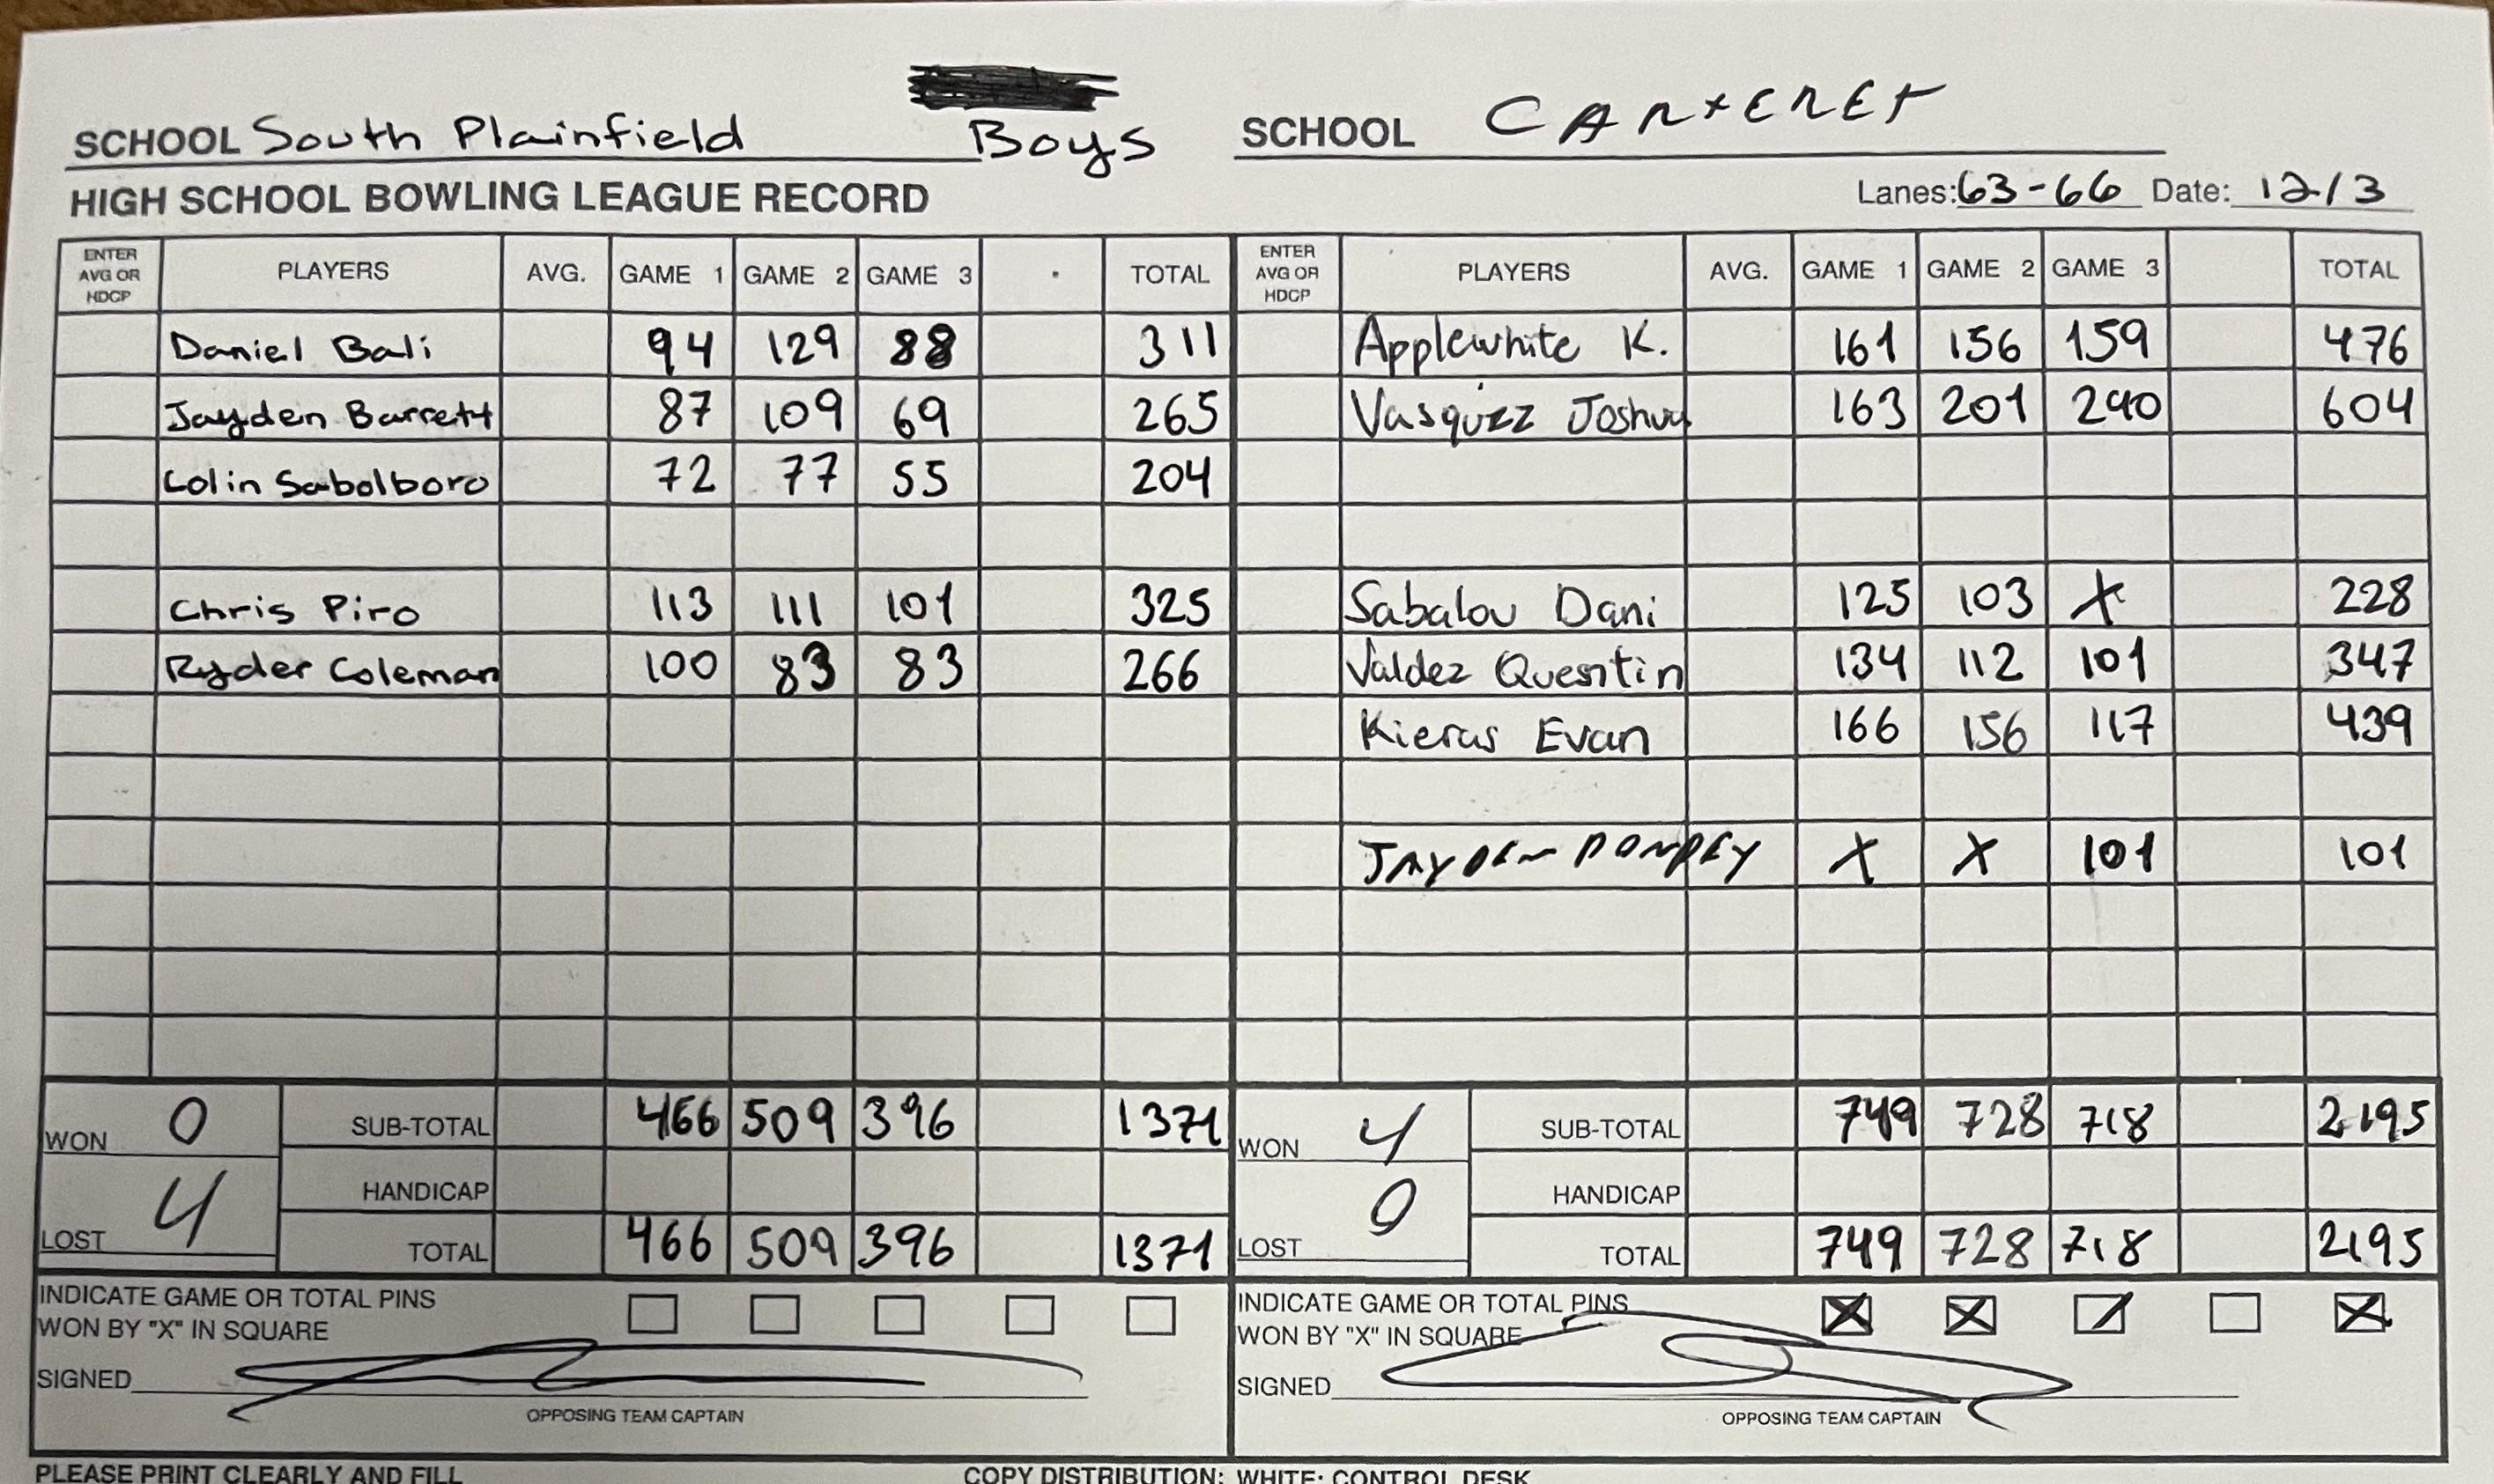 SCHOOL South Plainfield Boys SCHOOL CARTERET
HIGH SCHOOL BOWLING LEAGUE RECORD Lanes: 63-66 Date: 12/3
ENTER AVG OR HDCP PLAYERS AVG. GAME 1 GAME 2 GAME 3 TOTAL ENTER AVG OR HDCP PLAYERS AVG. GAME 1 GAME 2 GAME 3 TOTAL
Daniel Bali 94 129 88 311 Applewhite K. 161 156 159 476
Jayden Barrett 87 109 69 265 Vasquez Joshua 163 201 240 604
Colin Sabolboro 72 77 55 204
Chris Piro 113 111 101 325 Sabalou Dani 125 103 X 228
Ryder Coleman 100 83 83 266 Valdez Quentin 134 112 101 347
Kieras Evan 166 156 117 439
JAYDEN X X 101 101
WON 0 SUB-TOTAL 466 509 396 1371 WON 4 SUB-TOTAL 749 728 718 2195
HANDICAP HANDICAP
LOST 4 TOTAL 466 509 396 1371 LOST 0 TOTAL 749 728 718 2195
INDICATE GAME OR TOTAL PINS INDICATE GAME OR TOTAL PINS
WON BY "X" IN SQUARE WON BY "X" IN SQUARE
SIGNED SIGNED
OPPOSING TEAM CAPTAIN OPPOSING TEAM CAPTAIN
PLEASE PRINT CLEARLY AND FILL COPY DISTRIBUTION: WHITE: CONTROL DESK